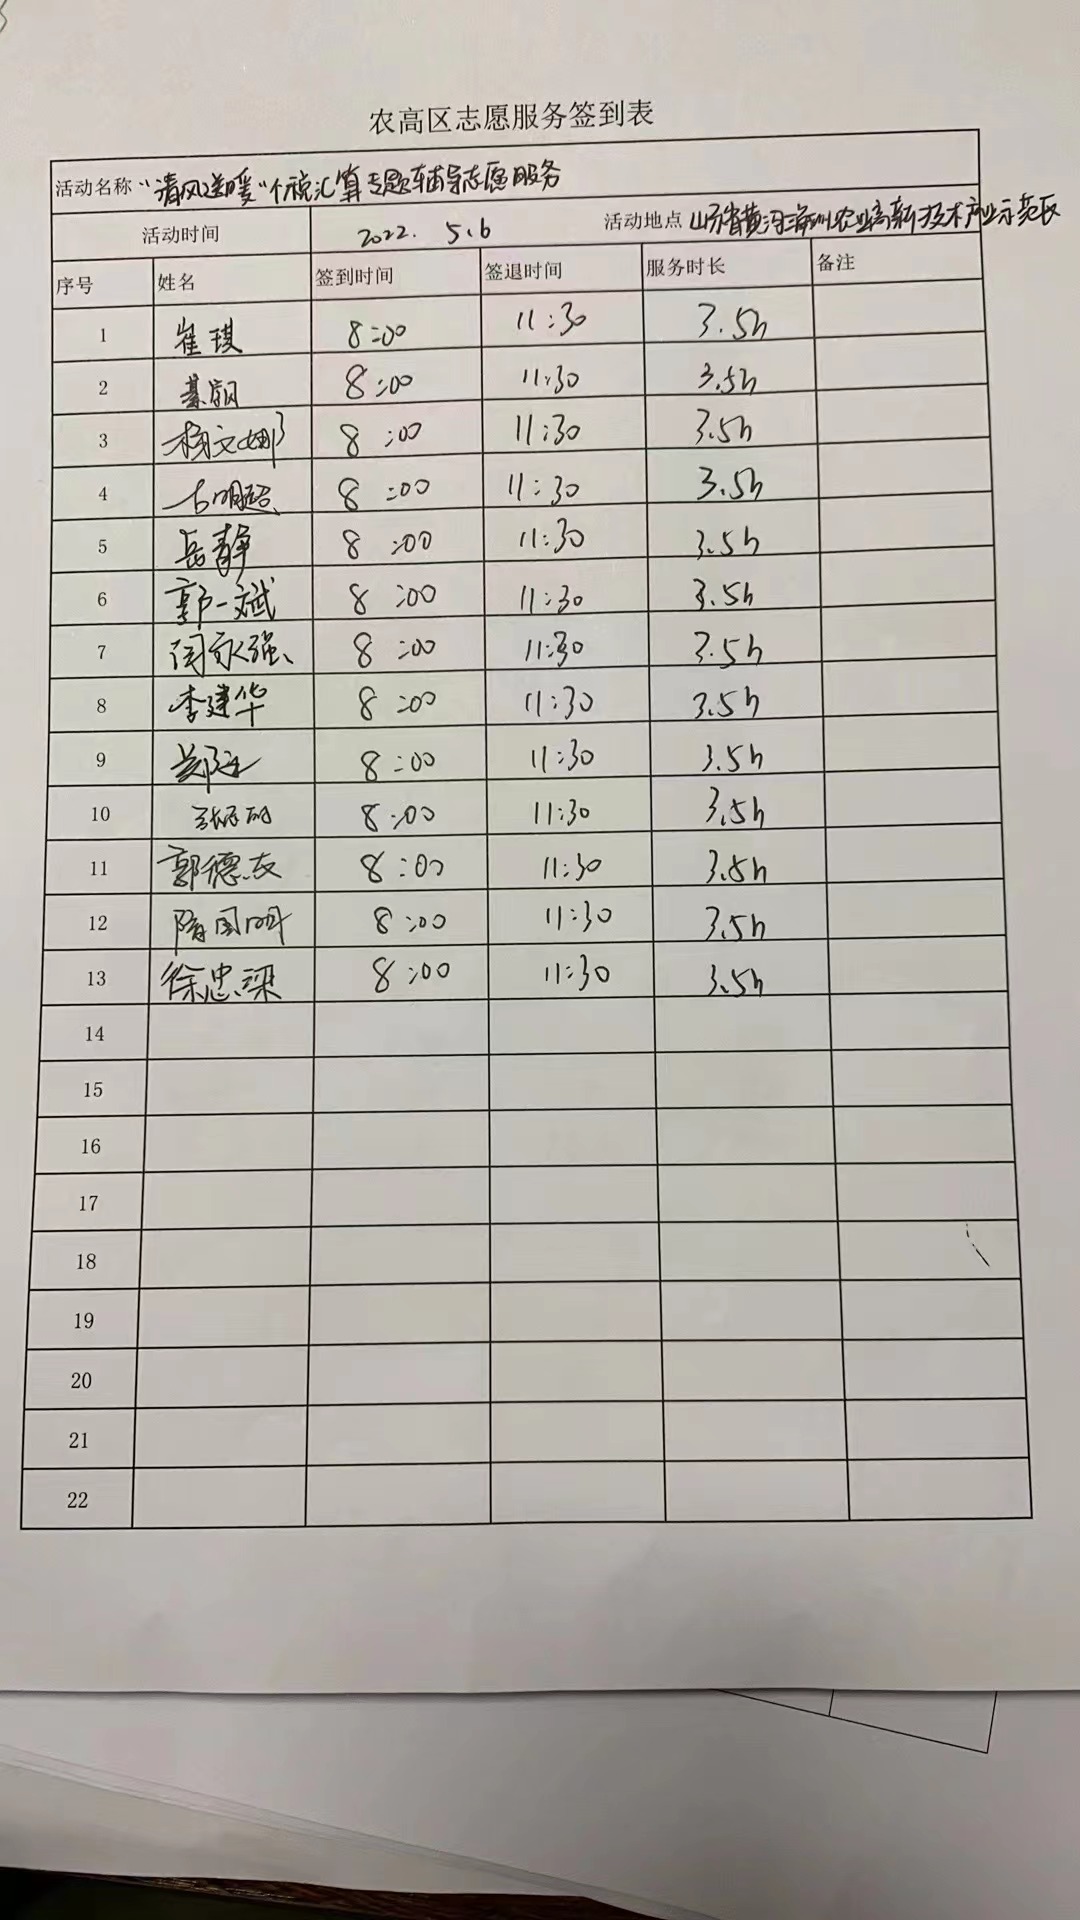 农高区志愿服务签到表
活动名称 "清风送暖"个税汇算专题辅导志愿服务
活动时间 2022. 5.6 活动地点 山东省黄河三角洲农业高新技术产业示范区
序号 姓名 签到时间 签退时间 服务时长 备注
1 崔琪 8:00 11:30 3.5h
2 8:00 11:30 3.5h
3 杨文娜 8:00 11:30 3.5h
4 8:00 11:30 3.5h
5 岳静 8:00 11:30 3.5h
6 郭一斌 8:00 11:30 3.5h
7 闫永强 8:00 11:30 3.5h
8 李建华 8:00 11:30 3.5h
9 8:00 11:30 3.5h
10 8:00 11:30 3.5h
11 郭德友 8:00 11:30 3.5h
12 隋国明 8:00 11:30 3.5h
13 徐忠梁 8:00 11:30 3.5h
14
15
16
17
18
19
20
21
22